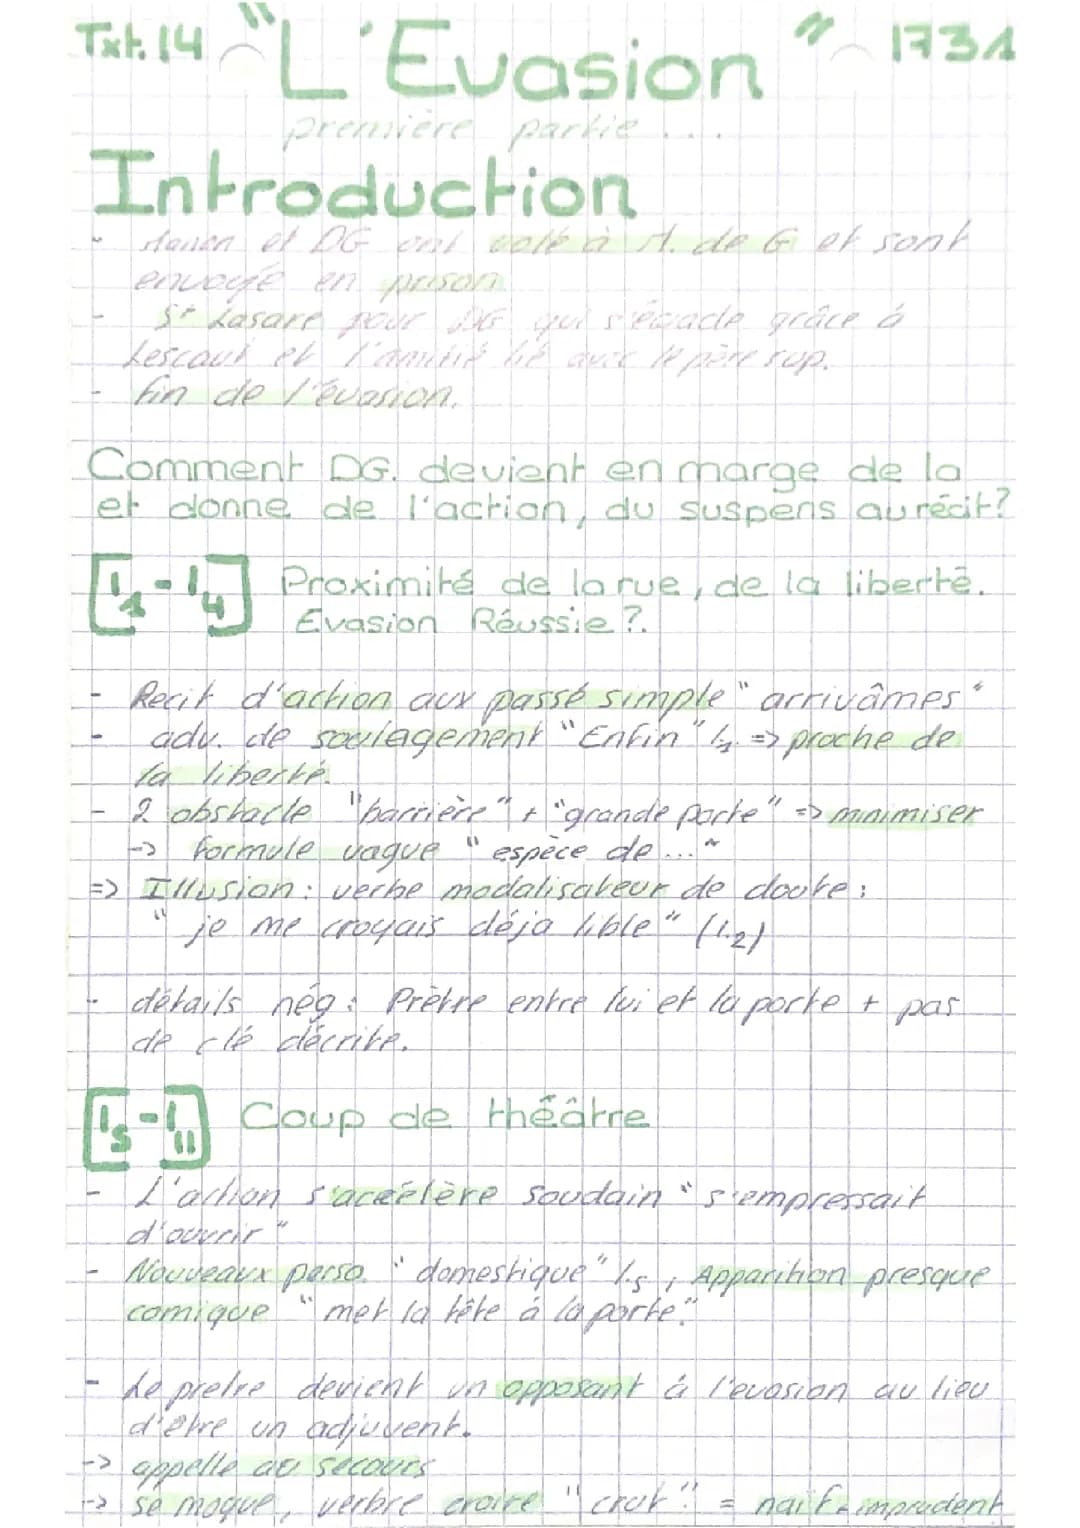 Txt. 14 "L'Evasion" 1731
première partie ...
Introduction
- Manon et DG ont volé à M. de G et sont
envoyé en prison
- St Lasare pour DG qui s'évade grâce à
Lescaut et l'amitié lié avec le père sup.
- fin de l'évasion.
Comment DG. devient en marge de la
et donne de l'action, du suspens au récit?
[l1-l4] Proximité de la rue, de la liberté.
Evasion Réussie?.
- Recit d'action aux passé simple "arrivâmes"
- adv. de soulagement "Enfin" l1. => proche de
la liberté.
- 2 obstacle "barrière" + "grande porte" => minimiser
-> formule vague "espèce de ..."
=> Illusion: verbe modalisateur de doute:
"je me croyais déja lible" (l.2)
- détails nég: Prètre entre lui et la porte + pas
de clé décrite.
[l5-l11] Coup de théâtre
- L'action s'accélère soudain "s'empressait
d'ouvrir"
- Nouveaux perso. "domestique" l.5, Apparition presque
comique "met la tête à la porte."
- Le pretre devient un opposant à l'evasion au lieu
d'être un adjuvent.
-> appelle au secours
-> se moque, verbre croire "crut" = naïf - imprudent